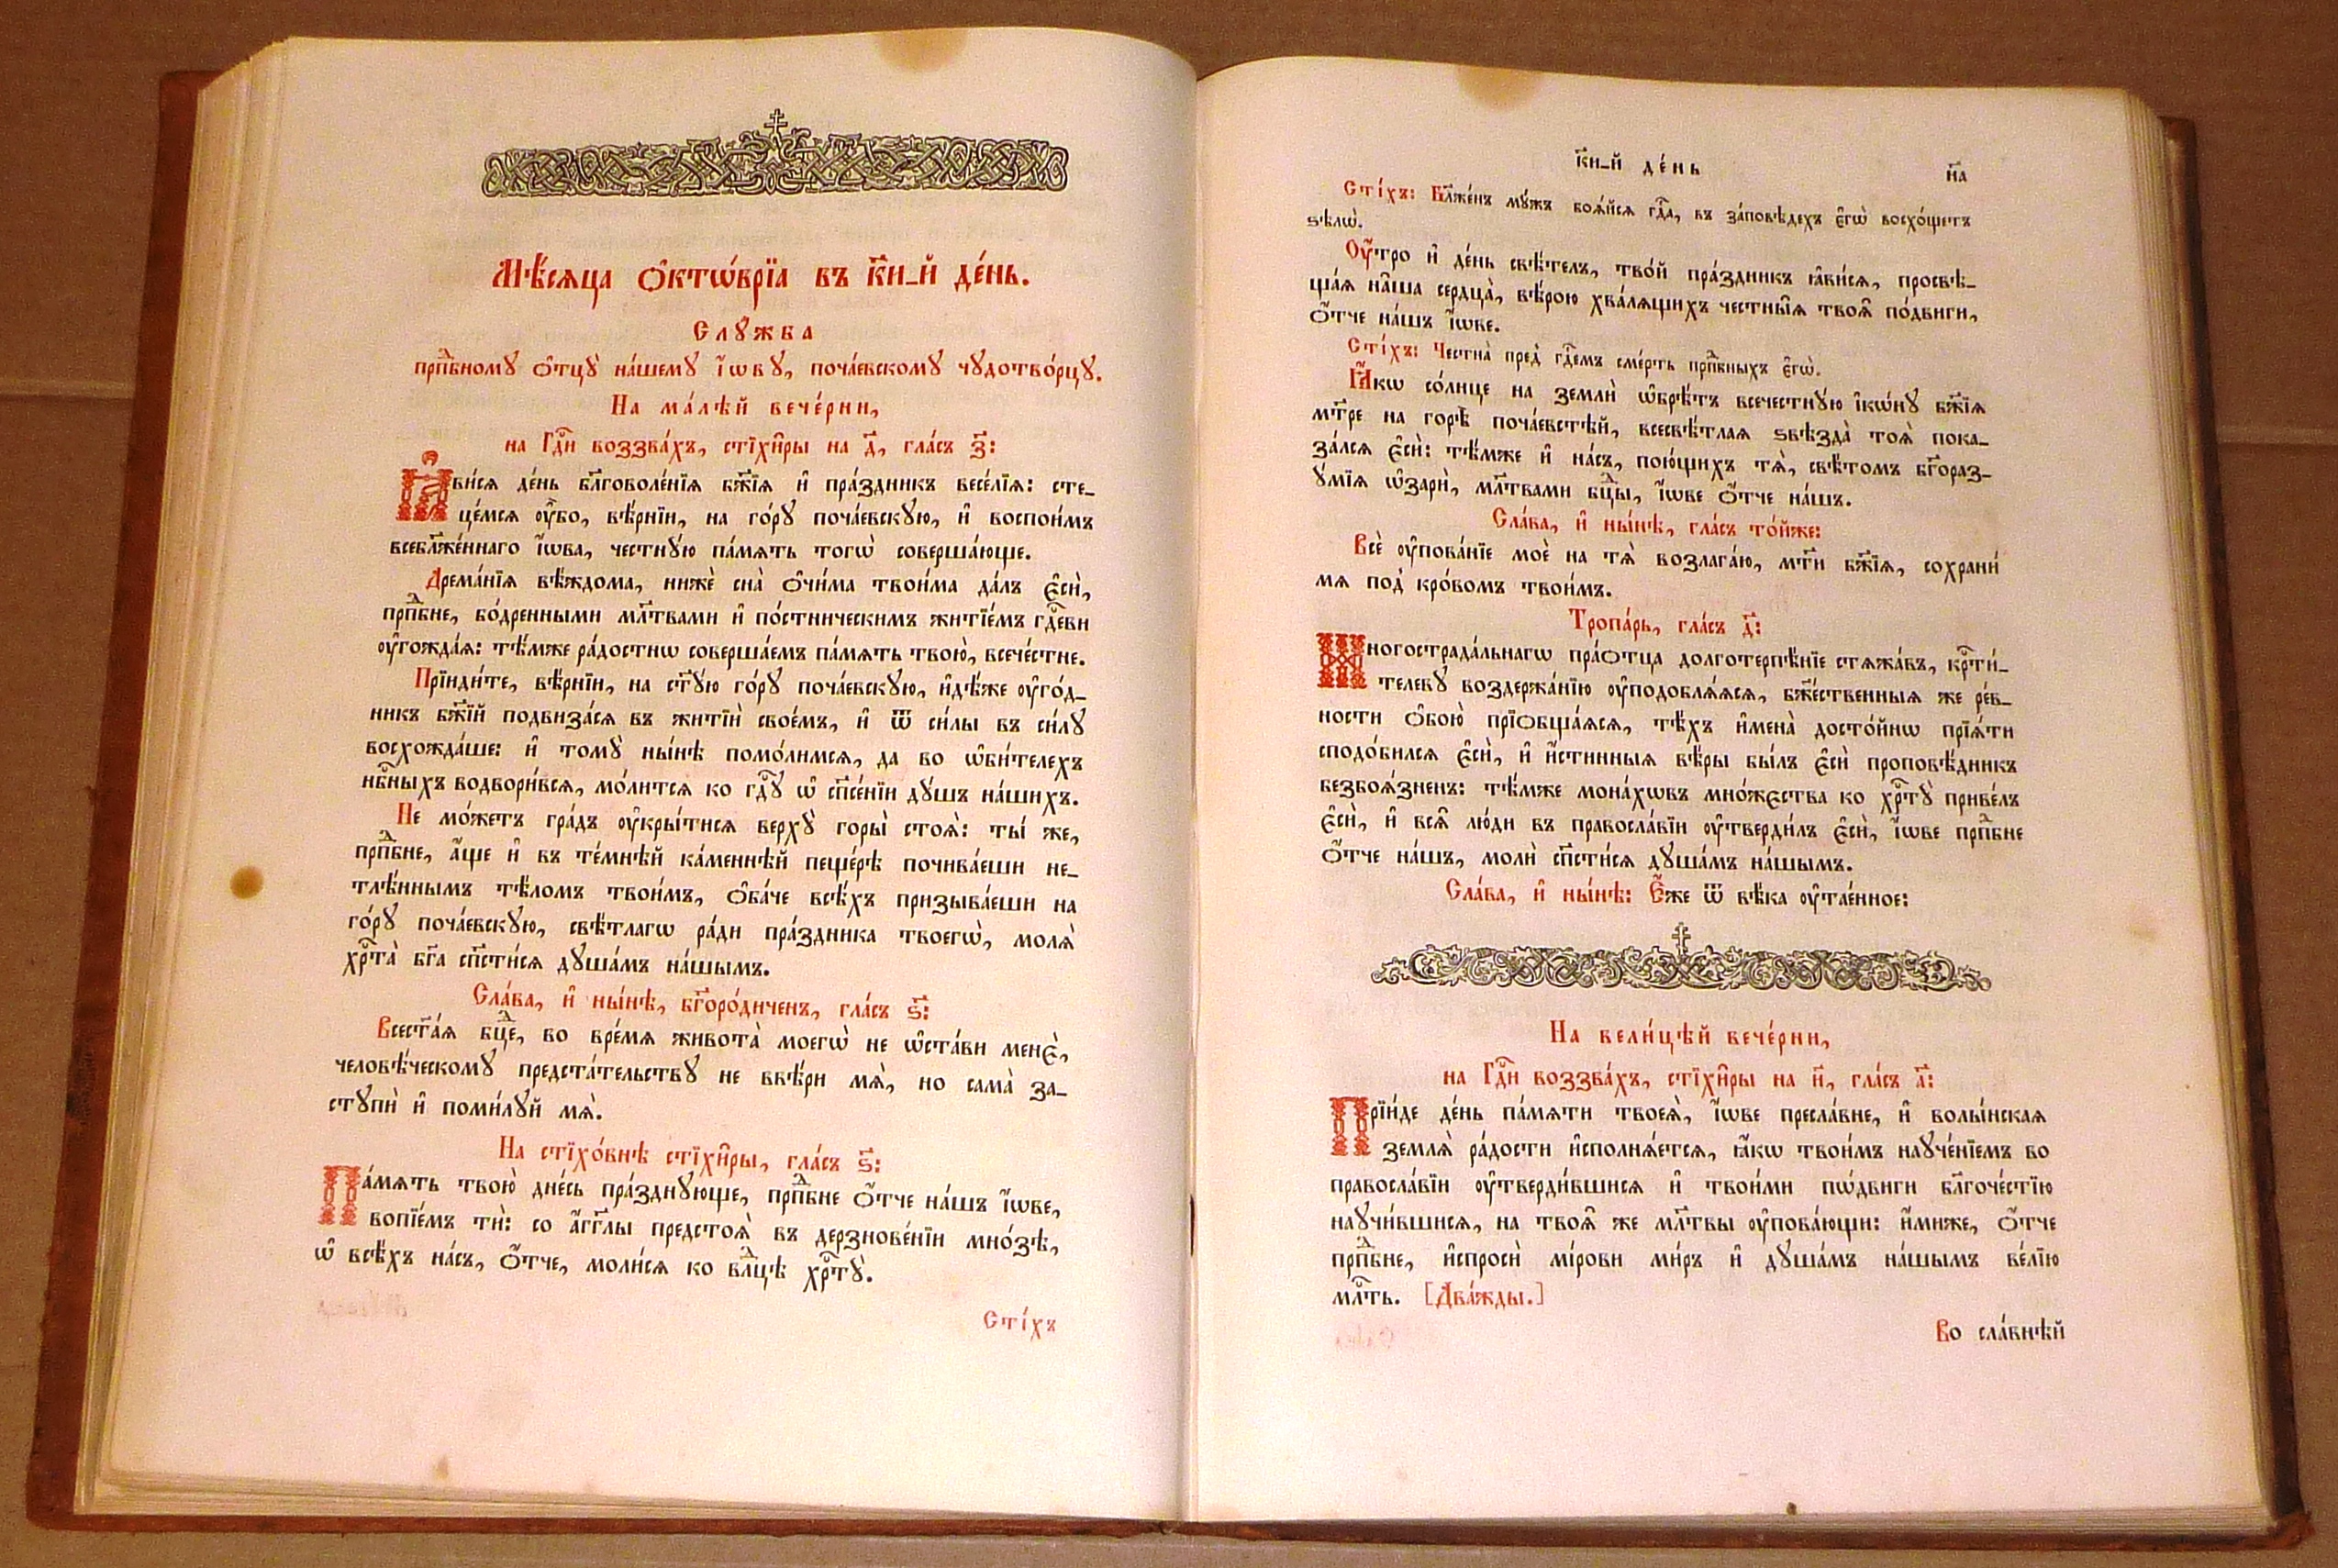 Мѣ́сяца Ѻ҆ктѡ́врїа въ к҃и_й де́нь.
Слꙋ́жба
прпⷣбномꙋ ѻ҆тцꙋ̀ на́шемꙋ і҆́ѡвꙋ, поча́евскомꙋ чꙋдотво́рцꙋ.
На ма́лѣй вече́рни,
на Гдⷭ҇и воззва́хъ, стїхи̑ры на д҃, гла́съ з҃:
Ꙗ҆ви́ся де́нь бл҃говоле́нїя бж҃їя и҆ пра́здникъ весе́лїя: сте_
це́мся ᲂу҆̀бо, вѣ́рнїи, на го́рꙋ поча́евскꙋю, и҆ воспои́мъ
всебл҃же́ннаго і҆́ѡва, честнꙋ́ю па́мять тогѡ̀ соверша́юще.
Дрема́нїя вѣ́ждома, нижѐ сна̀ ѻ҆чи́ма твои́ма да́лъ є҆сѝ,
прпⷣбне, бо́дренными мл҃твами и҆ по́стническимъ житїе́мъ гдⷭ҇еви
ᲂу҆гожда́я: тѣ́мже ра́достнѡ соверша́емъ па́мять твою̀, всече́стне.
Прїиди́те, вѣ́рнїи, на ст҃ꙋ́ю го́рꙋ поча́евскꙋю, и҆дѣ́же ᲂу҆го́д_
никъ бж҃їй подвиза́ся въ житїѝ свое́мъ, и҆ ѿ си́лы въ си́лꙋ
восхожда́ше: и҆ томꙋ̀ ны́нѣ помо́лимся, да во ѡ҆би́телехъ
нбⷭ҇ныхъ водвори́вся, мо́лится ко гдⷭ҇ꙋ ѡ҆ сп҃се́нїи дꙋ́шъ на́шихъ.
Не мо́жетъ гра́дъ ᲂу҆кры́тися верхꙋ̀ горы̀ стоѧ̀: ты́ же,
прпⷣбне, а҆́ще и҆ въ те́мнѣй ка́меннѣй пеще́рѣ почива́еши не_
тлѣ́ннымъ тѣ́ломъ твои́мъ, ѻ҆ба́че всѣ́хъ призыва́еши на
го́рꙋ поча́евскꙋю, свѣ́тлагѡ ра́ди пра́здника твоегѡ̀, молѧ̀
хрⷭ҇та̀ бг҃а сп҃сти́ся дꙋша́мъ на́шымъ.
Сла́ва, и҆ ны́нѣ, бг҃оро́диченъ, гла́съ ѕ҃:
Всест҃а́я бцⷣе, во вре́мя живота̀ моегѡ̀ не ѡ҆ста́ви менѐ,
человѣ́ческомꙋ предста́тельствꙋ не ввѣ́ри мѧ̀, но сама̀ за_
стꙋпѝ и҆ поми́лꙋй мѧ̀.
На стїхо́внѣ стїхи̑ры, гла́съ ѕ҃:
Па́мять твою̀ дне́сь пра́зднꙋюще, прпⷣбне ѻ҆́тче на́шъ і҆́ѡве,
вопїе́мъ тѝ: со а҆́гг҃лы предстоѧ̀ въ дерзнове́нїи мно́зѣ,
ѡ҆ всѣ́хъ на́съ, ѻ҆́тче, моли́ся ко влⷣцѣ хрⷭ҇тꙋ̀.
Сті́хъ
к҃и_й де́нь
н҃а
Сті́хъ: Бл҃же́нъ мꙋ́жъ боя́йся гдⷭ҇а, въ за́повѣдехъ є҆гѡ̀ восхо́щетъ
ѕѣлѡ̀.
Оу҆́тро и҆ де́нь свѣ́телъ, тво́й пра́здникъ ꙗ҆ви́ся, просвѣ_
ща́я на̑ша сердца̀, вѣ́рою хва́лящихъ честны̑я твоѧ̑ по́двиги,
ѻ҆́тче на́шъ і҆́ѡве.
Сті́хъ: Честна̀ пред̾ гдⷭ҇емъ сме́рть прпⷣбныхъ є҆гѡ̀.
Ꙗ҆́кѡ со́лнце на землѝ ѡ҆брѣ́тъ всечестнꙋ́ю і҆кѡ́нꙋ бж҃їя
мт҃ре на горѣ̀ поча́евстѣй, всесвѣ́тлая ѕвѣзда̀ тоѧ̀ пока_
за́лся є҆сѝ: тѣ́мже и҆ на́съ, пою́щихъ тѧ̀, свѣ́томъ бг҃ораз_
ꙋ́мїя ѡ҆зарѝ, мл҃твами бцⷣы, і҆́ѡве ѻ҆́тче на́шъ.
Сла́ва, и҆ ны́нѣ, гла́съ то́йже:
Всѐ ᲂу҆пова́нїе моѐ на тѧ̀ возлага́ю, мт҃и бж҃їя, сохрани́
мя под̾ кро́вомъ твои́мъ.
Тропа́рь, гла́съ д҃:
Многострада́льнагѡ пра́ѻтца долготерпѣ́нїе стяжа́въ, крⷭ҇ти́_
телевꙋ воздержа́нїю ᲂу҆подобля́яся, бж҃е́ственныя же ре́в_
ности ѻ҆бою̀ прїѻбща́яся, тѣ́хъ и҆мена̀ досто́йнѡ прїя́ти
сподо́бился є҆сѝ, и҆ и҆́стинныя вѣ́ры бы́лъ є҆сѝ проповѣ́дникъ
безбоя́зненъ: тѣ́мже мона́хѡвъ мно́жєства ко хрⷭ҇тꙋ̀ приве́лъ
є҆сѝ, и҆ всѧ̑ лю́ди въ правосла́вїи ᲂу҆тверди́лъ є҆сѝ, і҆́ѡве прпⷣбне
ѻ҆́тче на́шъ, молѝ сп҃сти́ся дꙋша́мъ на́шымъ.
Сла́ва, и҆ ны́нѣ: Є҆́же ѿ вѣ́ка ᲂу҆тае́нное:
На вели́цѣй вече́рни,
на Гдⷭ҇и воззва́хъ, стїхи̑ры на и҃, гла́съ а҃:
Прїи́де де́нь па́мяти твоеѧ̀, і҆́ѡве пресла́вне, и҆ волы́нская
землѧ̀ ра́дости и҆сполня́ется, ꙗ҆́кѡ твои́мъ наꙋче́нїемъ во
правосла́вїи ᲂу҆тверди́вшися и҆ твои́ми пѡ́двиги бл҃гоче́стїю
наꙋчи́вшися, на твоѧ̑ же мл҃твы ᲂу҆пова́ющи: и҆́миже, ѻ҆́тче
прпⷣбне, и҆спросѝ мі́рови ми́ръ и҆ дꙋша́мъ на́шымъ ве́лїю
млⷭ҇ть. [Два́жды.]
Во сла́внѣй